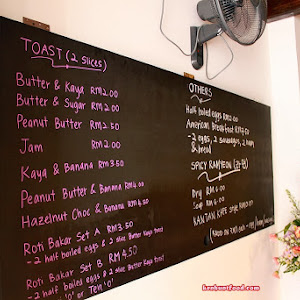 TOAST (2 SLICES)
Butter & Kaya RM2.00
Butter & Sugar RM2.00
Peanut Butter RM2.50
Jam RM2.00
Kaya & Banana RM3.50
Peanut Butter & Banana RM4.00
Hazelnut Choc & Banana RM4.50
Roti Bakar Set A RM3.50
- 2 half boiled eggs & 2 slice Butter Kaya toast
Roti Bakar Set B RM4.50
- 2 half boiled eggs & 2 slice Butter Kaya toast
OTHERS
Half boiled eggs RM2.00
American Breakfast
- 2 eggs, 2 sausages, 2 ham
& bread
SPICY RAMBEON
Dry RM6.00
Soup RM6.00
KAW KAW KOPI STYLE
kenhuntfood.com